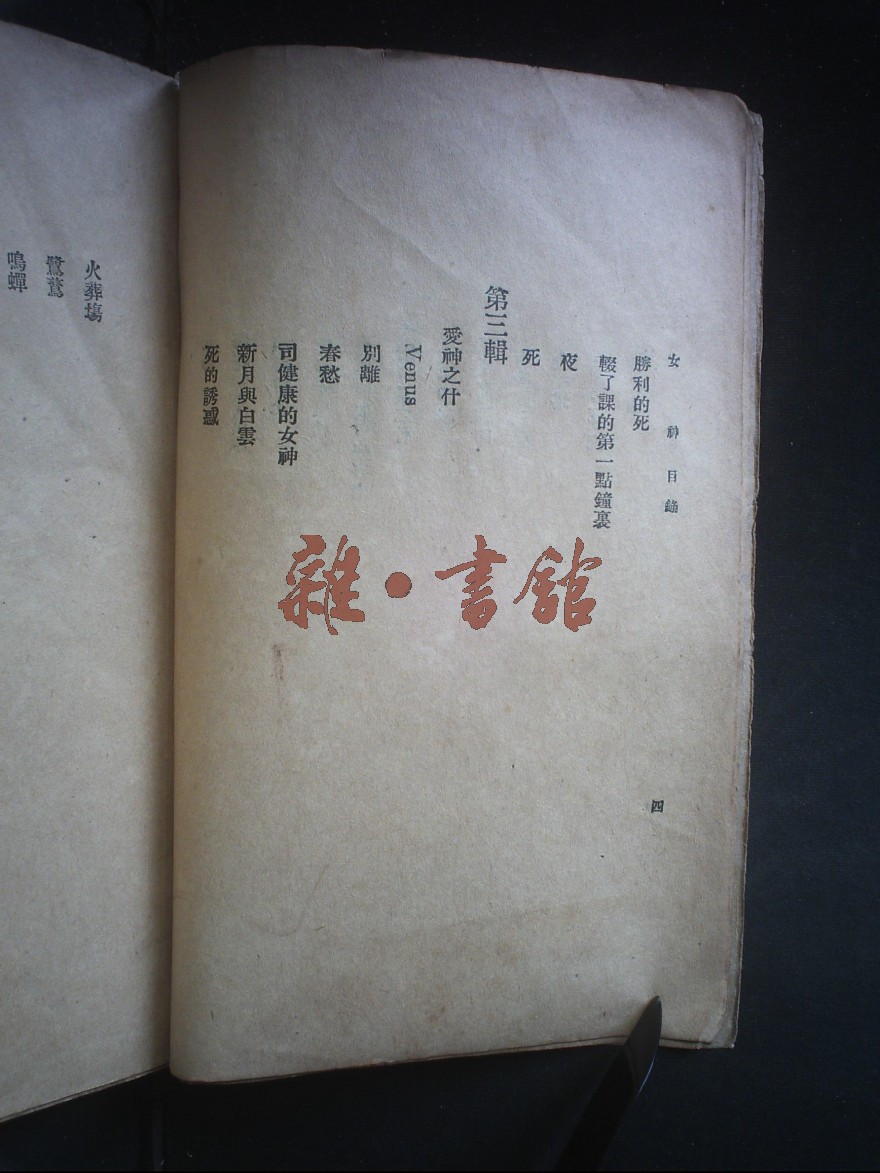 女神目錄
勝利的死
輟了課的第一點鐘裏
夜
死
第三輯
愛神之什
Venus
別離
春愁
司健康的女神
新月與白雲
死的誘惑
四
火葬塲
鷺鷥
鳴蟬
雜·書館